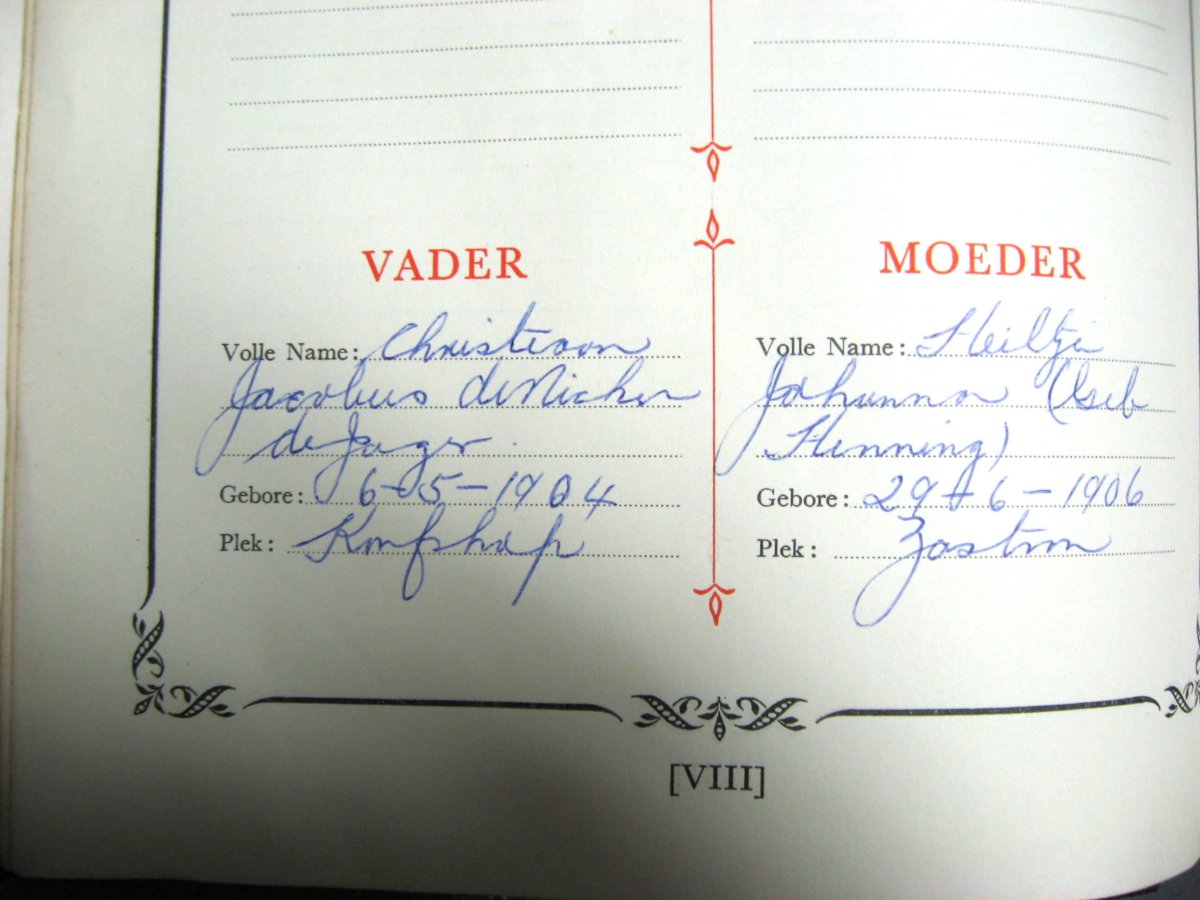 VADER
Volle Name: Christiaan
Jacobus de
de Jager.
Gebore: 6-5-1904
Plek:
MOEDER
Volle Name: Heiltje
Johanna (Geb
Henning)
Gebore: 29-6-1906
Plek: Zastron
[VIII]